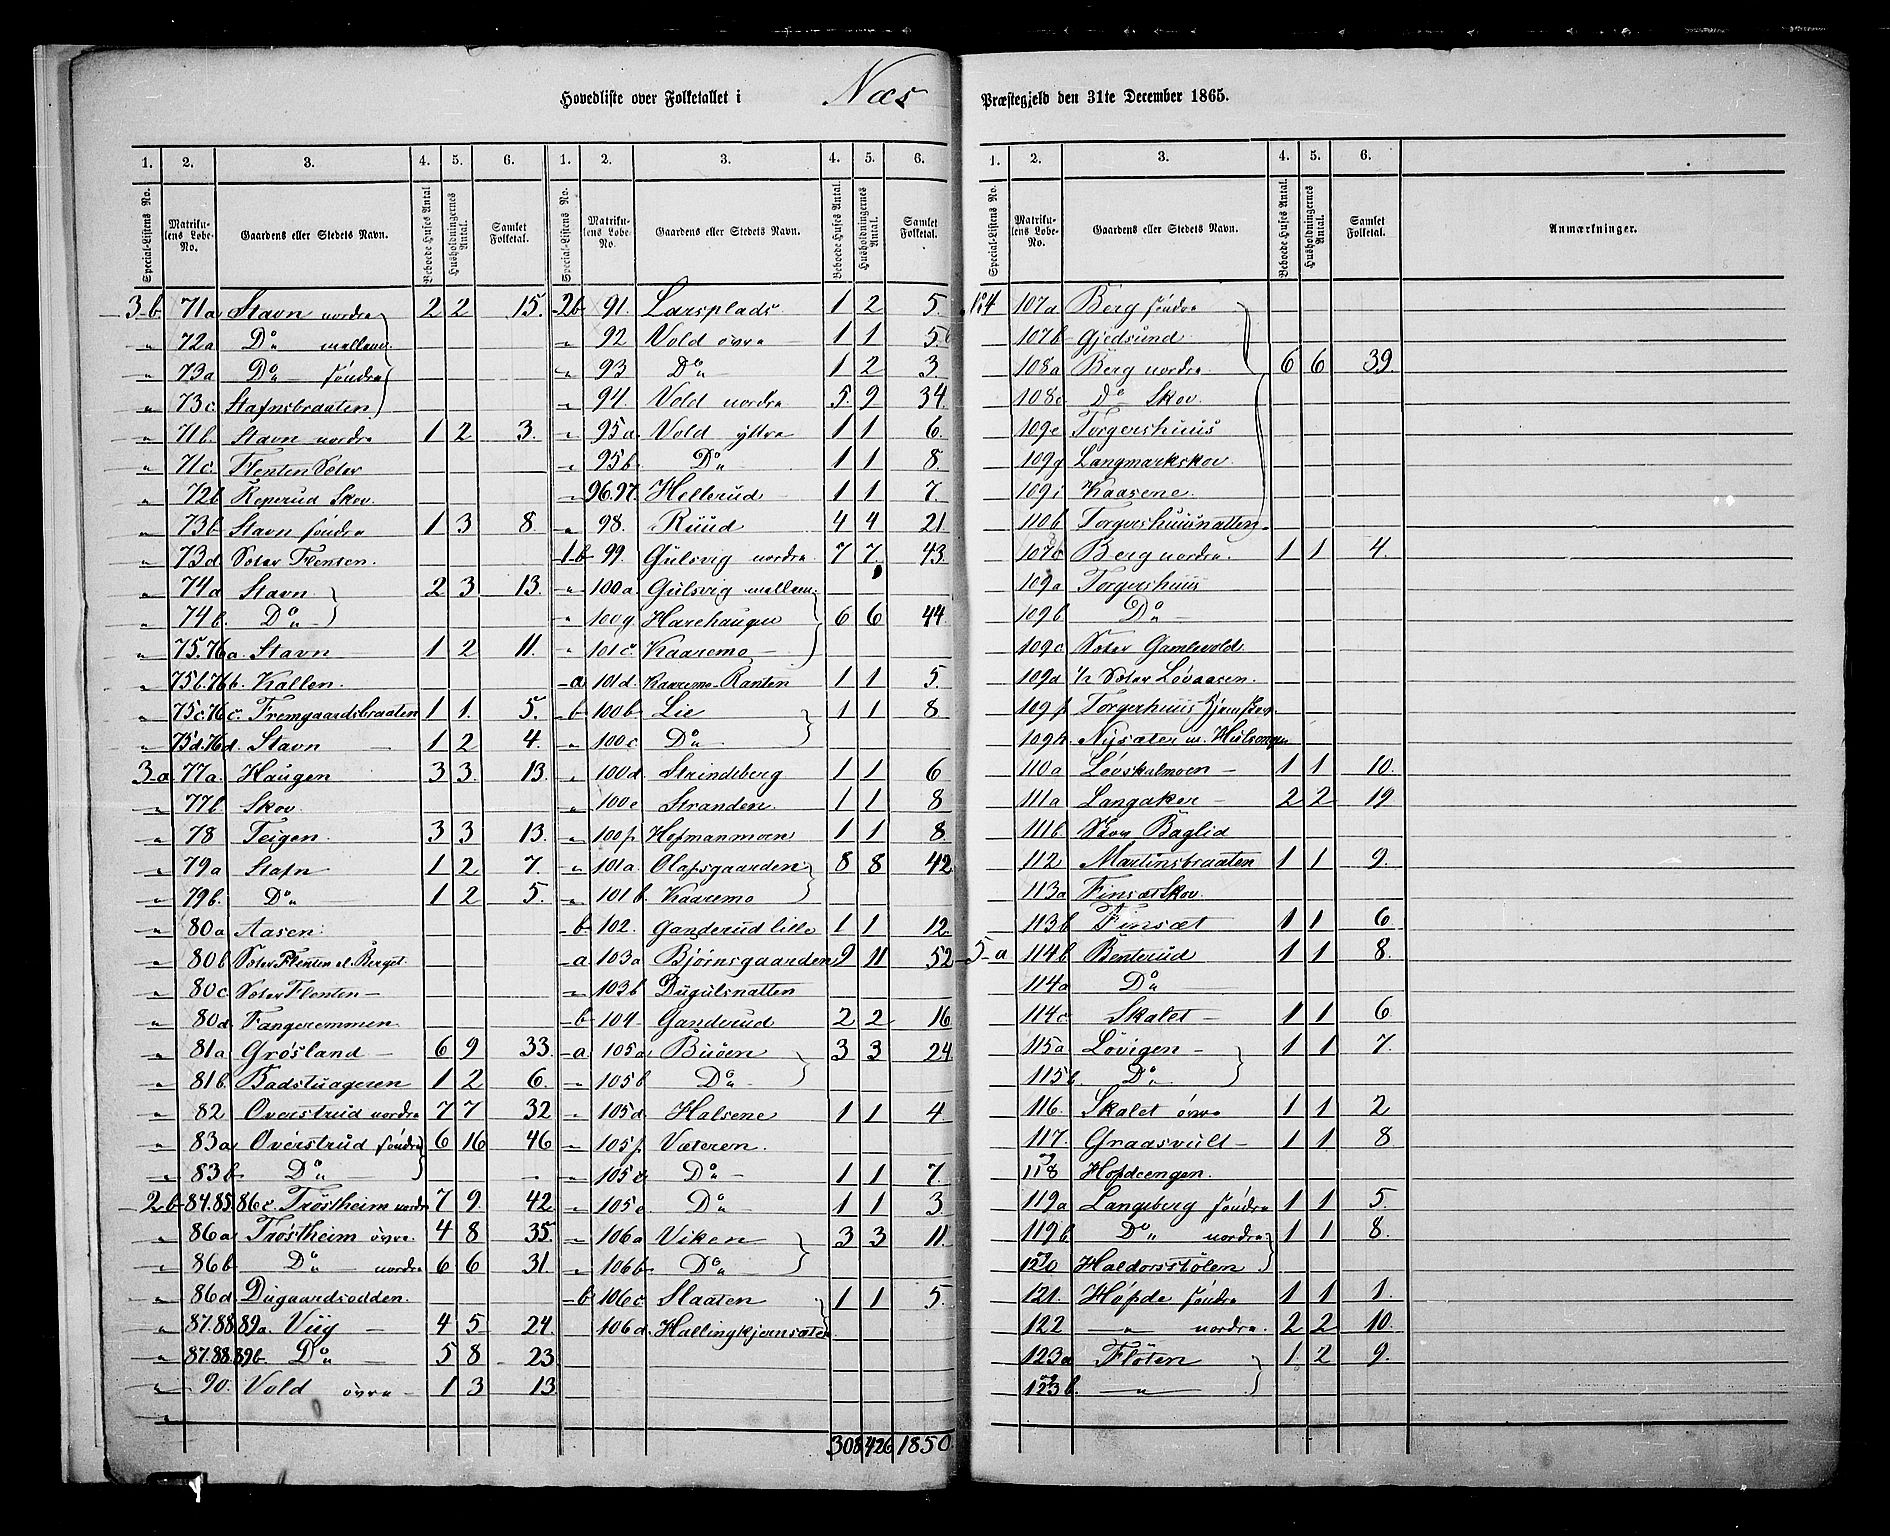 Hovedliste over Folketallet i Næs Præstegjeld den 31te December 1865.
1. 2. 3. 4. 5. 6. 1. 2. 3. 4. 5. 6.
Special-Listens No. Matrikulens Løbe-No. Gaardens eller Stedets Navn. Beboede Huses Antal Husholdningernes Antal. Samlet Folketal. Special-Listens No. Matrikulens Løbe-No. Gaardens eller Stedets Navn. Beboede Huses Antal. Husholdningernes Antal. Samlet Folketal.
3-b 71a Stavn nordre 2 2 15.
„ 72a Do mellem
„ 73a Do søndre
„ 73c Stafnsbraaten
„ 71b. Stavn nordre 1 2 3.
„ 71c. Flenten Sæter
„ 72b Roperud Skov.
„ 73b Stavn søndre 1 3 8.
„ 73d Sæter Flenten.
„ 74a Stavn 2 3 13.
„ 74b. Do
„ 75.76a. Stavn 1 2 11.
„ 75b.76b. Kallen.
„ 75c.76c. Fremgaardsbraaten 1 1. 5.
„ 75d.76d. Stavn 1 2 4.
3a 77a. Haugen 3 3 13.
„ 77b Skov
„ 78 Teigen 3 3 13.
„ 79a Stafn 1 2 7.
„ 79b. Do 1 2 5.
„ 80a Aasen.
„ 80b Sæter Flenten el. Berget
„ 80c Sæter Flenten
„ 80d Fangeremmen.
„ 81a Grøsland 6 9 33.
„ 81b. Badstuageren 1 2 6.
„ 82 Overstrud nordre 7 7 32
„ 83a Overstrud søndre 6 16 46
„ 83b Do
2b 84.85.86c. Trøstheim nordre 7 9. 42
„ 86a Trøstheim øvre 4 8 35.
„ 86b. Do nordre 6 6 31.
„ 86d Dugaardsodden.
„ 87.88.89a. Viig 4 5 24.
„ 87.88.89b. Do 5 8 23
„ 90. Vold øvre 1 3 13
2b 91. Larsplads 1 2 5.
„ 92 Vold øvre 1 1 5
„ 93 Do 1 2 3.
„ 94 Vold nordre 5 9 34.
„ 95a Vold yttre 1 1 6.
„ 95b. Do 1 1 8.
„ 96.97. Hellerud 1 1 7.
„ 98. Ruud 4 4 21
1-b 99. Gulsvig nordre 7 7. 43.
„ 100a Gulsvig mellem
„ 100g Harehaugen 6 6 44.
„ 101c. Kaaremo
a 101d. Kaaremo Ranten 1 1 5.
b 100b Lie 1 1 8
„ 100c Do
„ 100d. Strindeberg 1 1 6
„ 100e Stranden 1 1 8
„ 100f Hofmanmoen 1 1 8
„ 101a Olafsgaarden 8 8 42
„ 101b. Kaaremo
b 102. Ganderud lille 1 1 12
a 103a Bjørnsgaarden 9 11 52
„ 103b Dugulsnatten
b 104 Ganderud 2 2 16
a 105a Buøen 3 3 24
„ 105b Do
„ 105d. Halsene 1 1 4
„ 105f Væteren.
„ 105 Do 1 1 7.
„ 105e Do 1 1 3.
„ 106a Viken 3 3 11.
„ 106b Do
b 106c Slaaten 1 1 5.
106d. Hallingkjernsæter
308 426 1850
1. 2. 3. 4. 5. 6.
Special-Listens No. Matrikulens Løbe-No. Gaardens eller Stedets Navn. Beboede Huses Antal. Husholdningernes Antal. Samlet Folketal. Anmærkninger.
107a Berg søndre
107b Gjedsund
108a Berg nordre 6 6 39.
108c Do Skov
109e Torgershuus
109g Langmarkskov
109i Kaasene
110b Torgershuunatten
107c Berg nordre. 1 1 4.
109a Torgershuus
109b Do
109c Sæter Gamlevold.
109d 1/2 Sæter Løvaasen.
109f Torgerhuus
109h. Nysæter
110a Løvskalmoen 1 1 10.
111a Langaker 2 2 19
111b Skov Baglid
112 Martinsbraaten 1 1 9.
113a Finsæt Skov
113b Finsæt 1 1 6
5-a 114b Benterud 1 1 8.
114a Do
114c Skalet 1 1 6
115a Løvigen 1 1 7.
115b. Do
116. Skalet øvre 1 1 2
117. Graasvult 1 1 8
118 Høpdeengen.
119a Langeberg søndre 1 1 5.
119b Do nordre 1 1 8.
120 Haldorsstølen
121. Høpde søndre 1 1 1.
122 „ nordre. 2 2 10.
123a Fløten 1. 2 9.
123b. „